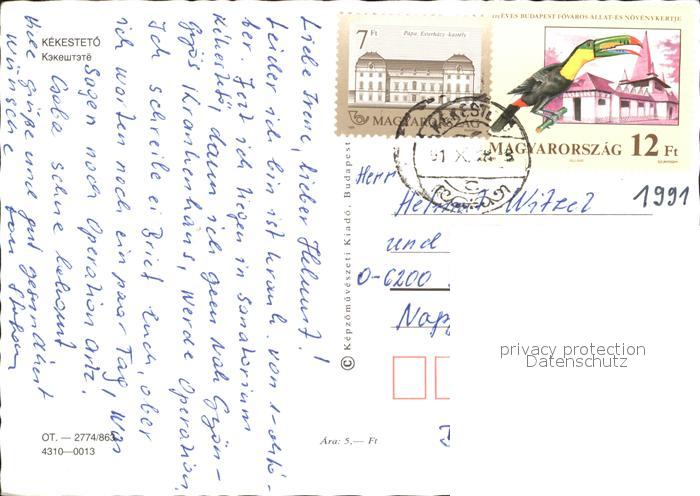 KÉKESTETŐ
Кэкештэтё
Liebe Irene, lieber Helmut!
Leider ich bin ist krank. von 1-okto-
ber. Jetzt ich liegen in Sanatorium
Kékestető, dann ich geen nach Gyön-
gyös Krankenhaus, werde Operation.
Ich schreibe ei Brief Euch, aber
ich warten noch ein paar Tag, was
sagen noch Operation Arzt.
Csaba schule bekommt
Viele Grüße und gut gesundheit
wünsche
OT. — 2774/863
4310—0013
Ára: 5,— Ft
© Képzőművészeti Kiadó, Budapest
7 Ft
Pápa, Esterházy-kastély
MAGYARORSZÁG
125 ÉVES BUDAPEST FŐVÁROS ÁLLAT- ÉS NÖVÉNYKERTJE
MAGYARORSZÁG 12 Ft
KÉKESTETŐ
91 X.
Herr
Helmut Witzel
1991
und
O-6200
privacy protection
Datenschutz